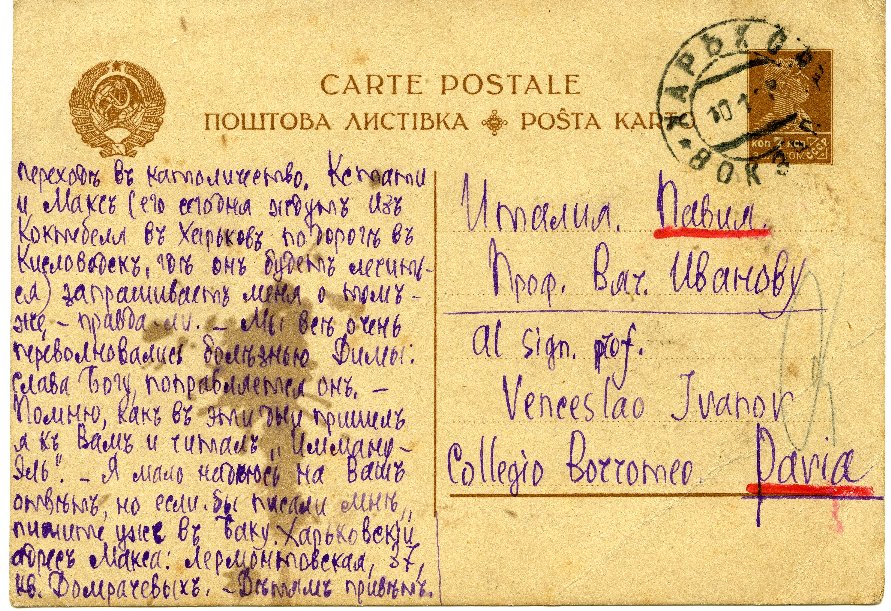 CARTE POSTALE
ПОШТОВА ЛИСТІВКА POŜTA KARTO
ХАРЬКОВ
10.1
ВОКЗАЛ
КОП. 3 КОП.
переходъ въ католичество. Кстати
и Максъ (его сегодня ждутъ изъ
Коктебеля въ Харьковъ по дорогѣ въ
Кисловодск, гдѣ онъ будетъ лечить-
ся) запрашиваетъ меня о томъ-
же – правда-ли. – Мы всѣ очень
переволновались болѣзнью Димы:
слава Богу, поправляется онъ. –
Помню, какъ въ эти дни пришелъ
я къ Вамъ и читалъ „Имману-
эль". – Я мало надѣюсь на Вашъ
отвѣтъ, но если-бы писали мнѣ,
пишите уже въ Баку. Харьковскій
адресъ Макса: Лермонтовская, 37,
кв. Домрачевыхъ. – Дѣтямъ привѣтъ.
Италия. Павия.
Проф. Вяч. Иванову
al sign. prof.
Venceslao Ivanov
Collegio Borromeo. Pavia